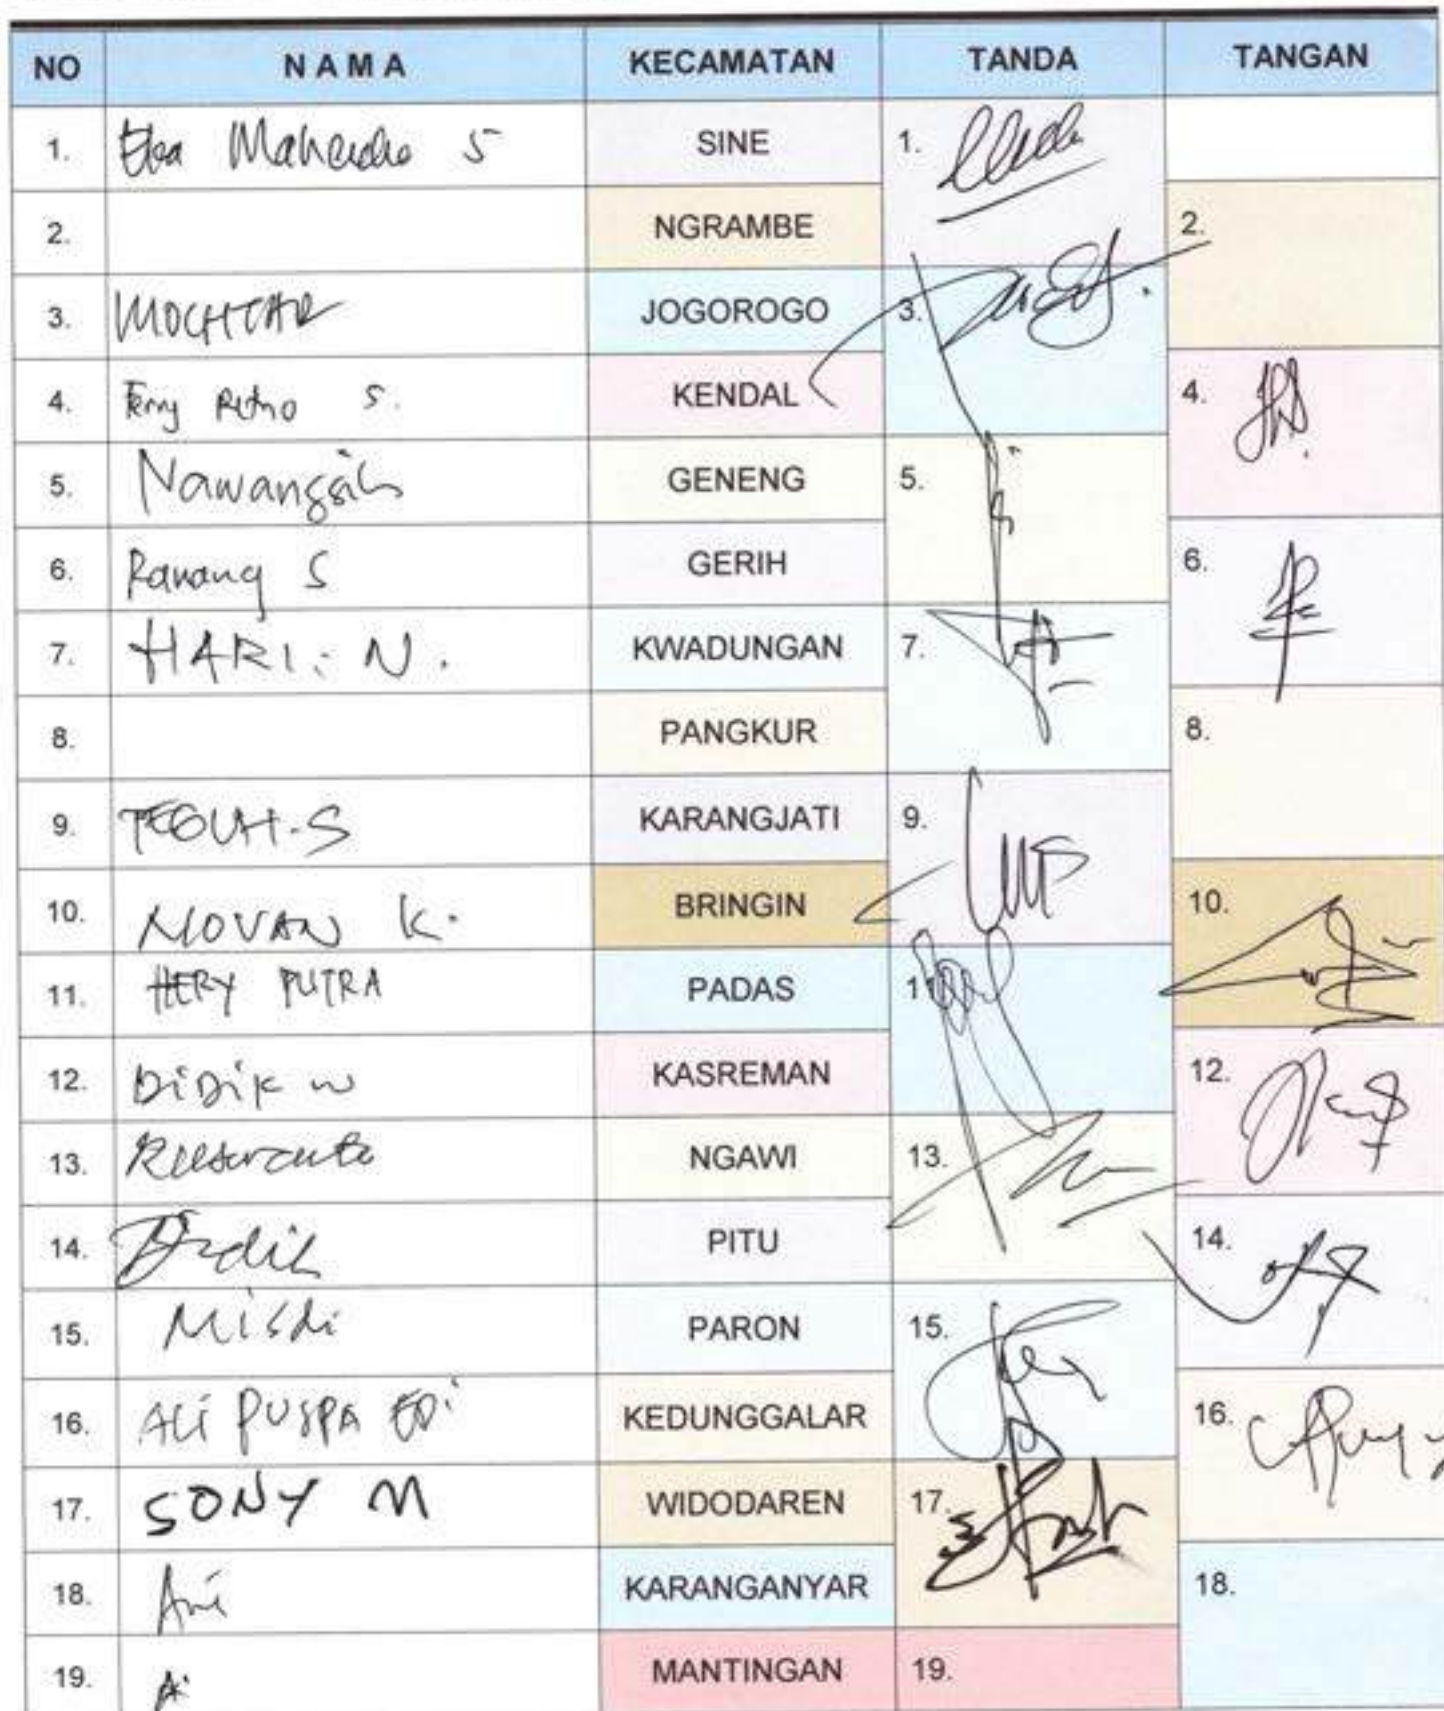 NO NAMA KECAMATAN TANDA TANGAN
1. Eka Mahendra S SINE 1.
2. NGRAMBE 2.
3. MOCHTAR JOGOROGO 3.
4. Retno S. KENDAL 4.
5. Nawangsih GENENG 5.
6. Ranang S GERIH 6.
7. HARI. N. KWADUNGAN 7.
8. PANGKUR 8.
9. TEGUH.S KARANGJATI 9.
10. NOVAN K. BRINGIN 10.
11. HERY PUTRA PADAS 11
12. DiDik W KASREMAN 12.
13. NGAWI 13.
14. PITU 14.
15. Misdi PARON 15.
16. ALi PUSPA EDi KEDUNGGALAR 16.
17. SONY M WIDODAREN 17.
18. KARANGANYAR 18.
19. MANTINGAN 19.